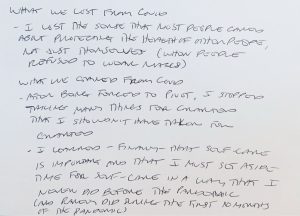 WHAT WE LOST FROM COVID
- I LOST THE SENSE THAT MOST PEOPLE CARED
ABOUT PROTECTING THE HEALTH OF OTHER PEOPLE,
NOT JUST THEMSELVES (WHEN PEOPLE
REFUSED TO WEAR MASKS)
WHAT WE GAINED FROM COVID
- AFTER BEING FORCED TO PIVOT, I STOPPED
TAKING MANY THINGS FOR GRANTED
THAT I SHOULDN'T HAVE TAKEN FOR
GRANTED
- I LEARNED - FINALLY THAT SELF-CARE
IS IMPORTANT AND THAT I MUST SET ASIDE
TIME FOR SELF-CARE IN A WAY THAT I
NEVER DID BEFORE THE PANDEMIC
(AND RARELY DID DURING THE FIRST 10 MONTHS
OF THE PANDEMIC)